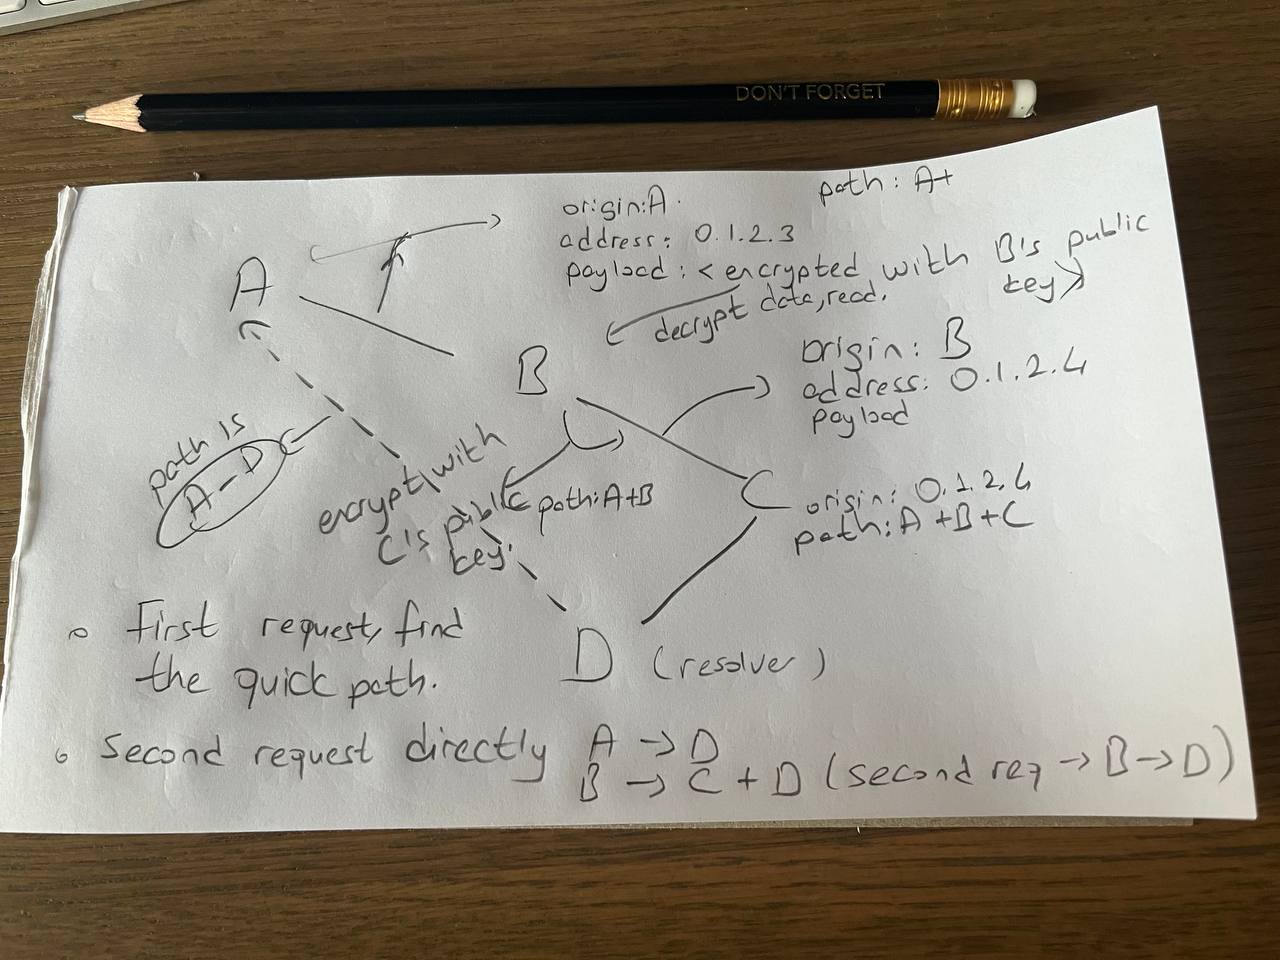 DON'T FORGET
path: A+
origin: A
address: 0.1.2.3
payload: < encrypted with B's public
key>
decrypt data, read.
A
B
origin: B
address: 0.1.2.4
payload
path is
A-D
encrypt with
C's public
key.
path: A+B
C
origin: 0.1.2.4
path: A+B+C
First request, find
the quick path.
D (resolver)
Second request directly A → D
B → C + D (second req → B → D)